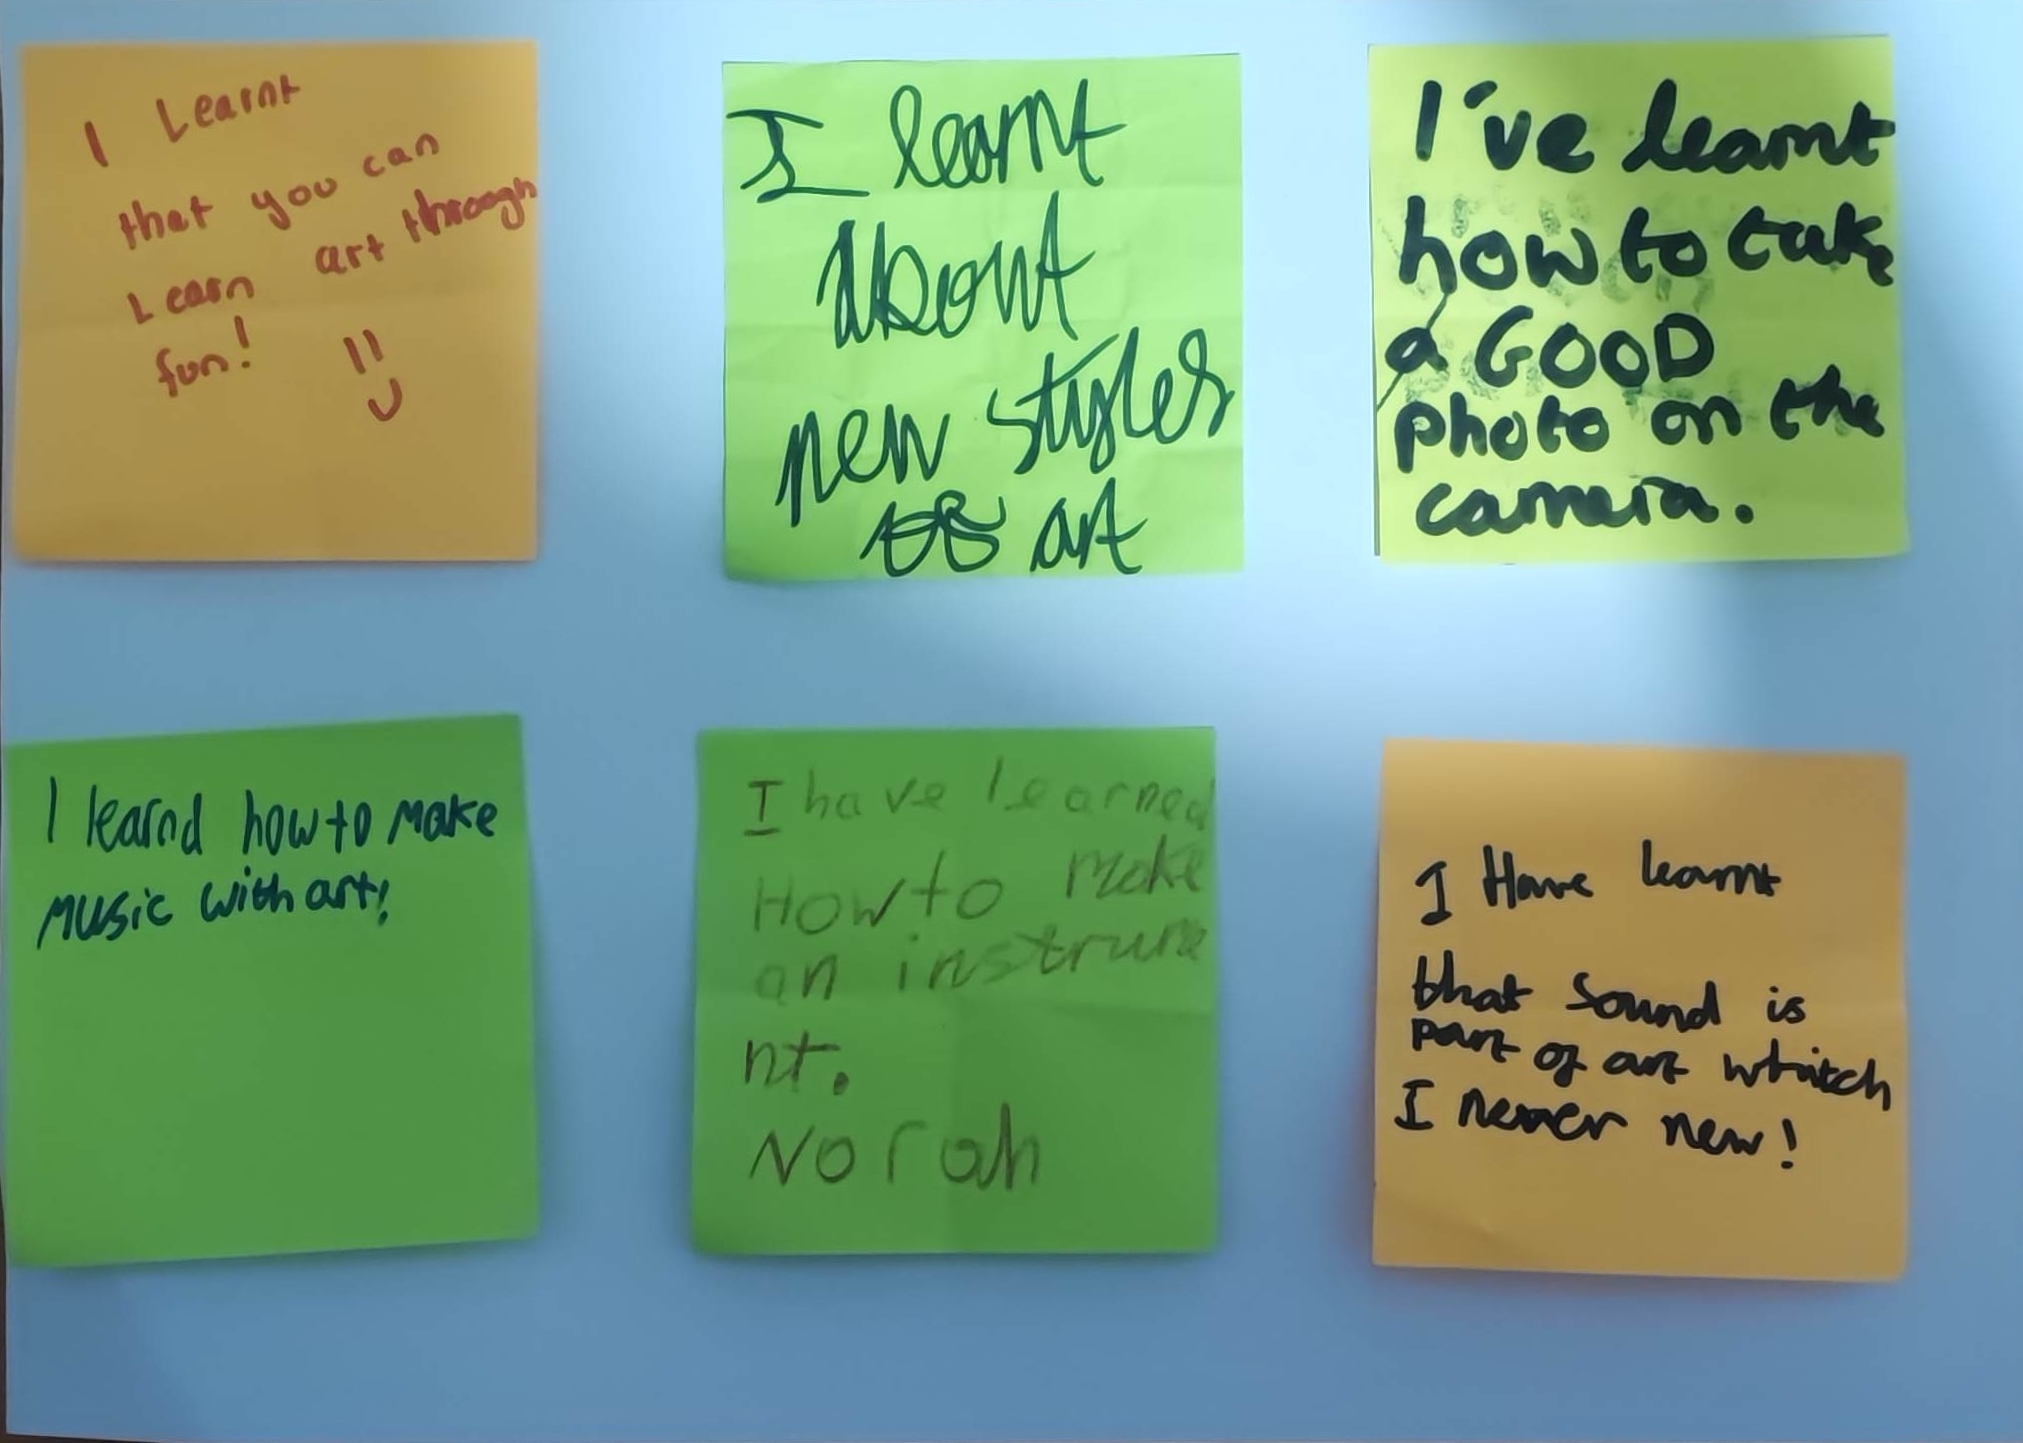 I Learnt
that you can
Learn art through
fun! =)
I learnt
about
new styles
of art
I've learnt
how to take
a GOOD
photo on the
camera.
I learnd how to make
music with art!
I have learned
How to make
an instrume
nt.
Norah
I Have learnt
that sound is
part of art whitch
I never new!